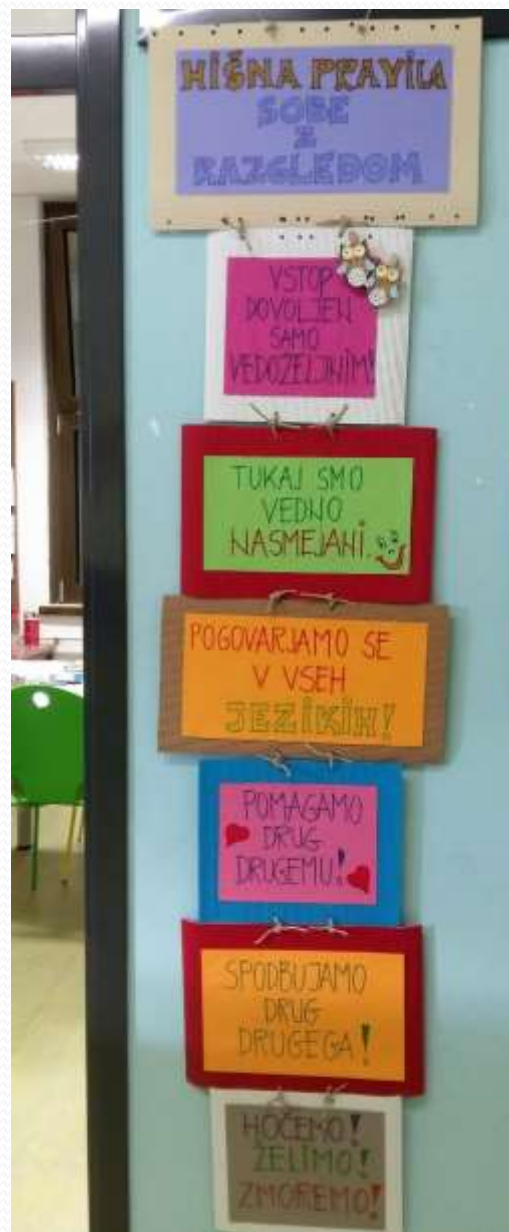 HIŠNA PRAVILA
SOBE
Z
RAZGLEDOM
VSTOP
DOVOLJEN
SAMO
VEDOŽELJNIM!
TUKAJ SMO
VEDNO
NASMEJANI.
POGOVARJAMO SE
V VSEH
JEZIKIH!
POMAGAMO
DRUG
DRUGEMU!
SPODBUJAMO
DRUG
DRUGEGA!
HOČEMO!
ŽELIMO!
ZMOREMO!